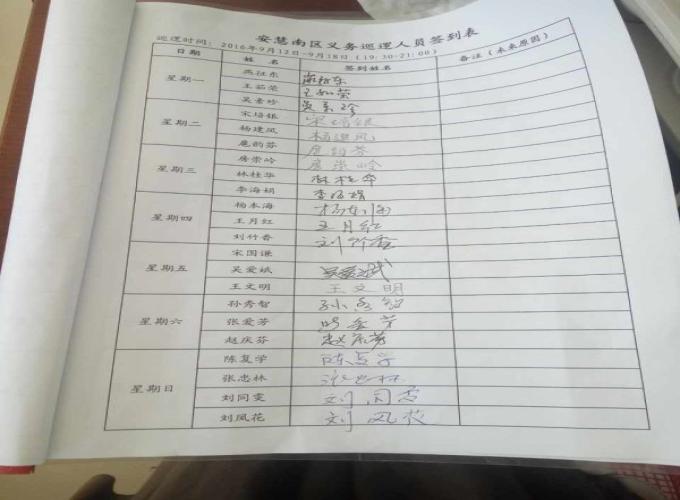 安慧南区义务巡逻人员签到表
巡逻时间：2016年9月12日-9月18日（19:30-21:00）
日期 姓名 签到姓名 备注（未来原因）
星期一
燕征东
王茹荣 王茹荣
吴素珍 吴素珍
星期二
宋培银 宋培银
杨建凤 杨建凤
扈韵芬 扈韵芬
星期三
房崇岭 房崇岭
林桂华 林桂华
李海娟 李海娟
星期四
杨本海
王月红 王月红
刘竹香 刘竹香
星期五
宋国谦
吴爱斌 吴爱斌
王文明 王文明
星期六
孙秀智 孙秀智
张爱芳
赵庆芬 赵庆芬
星期日
陈复学 陈复学
张忠林 张忠林
刘同雯 刘同雯
刘凤花 刘凤花